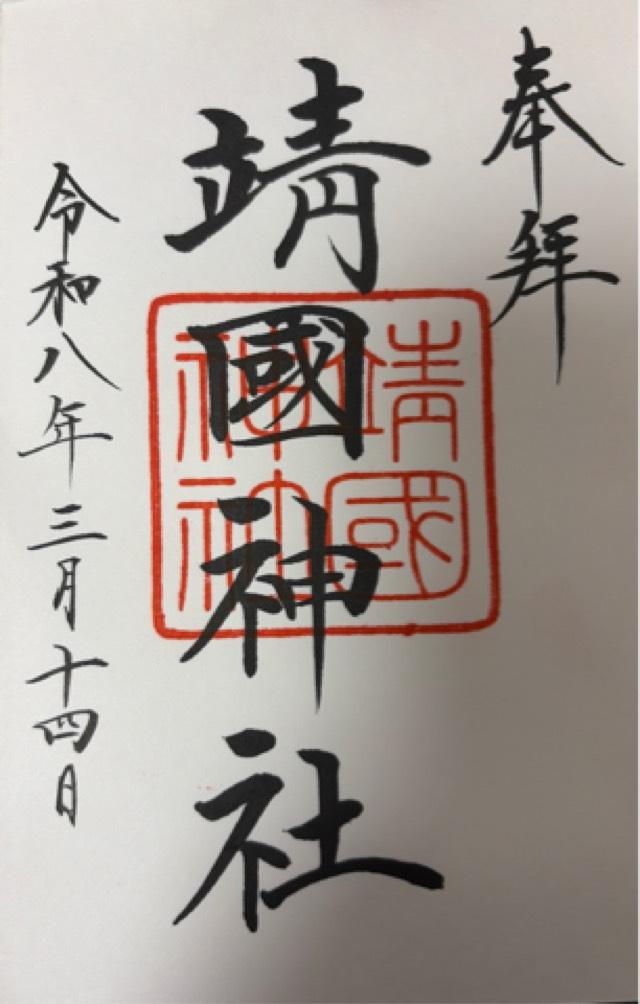 奉拝
靖國神社
靖國
神社
令和八年三月十四日